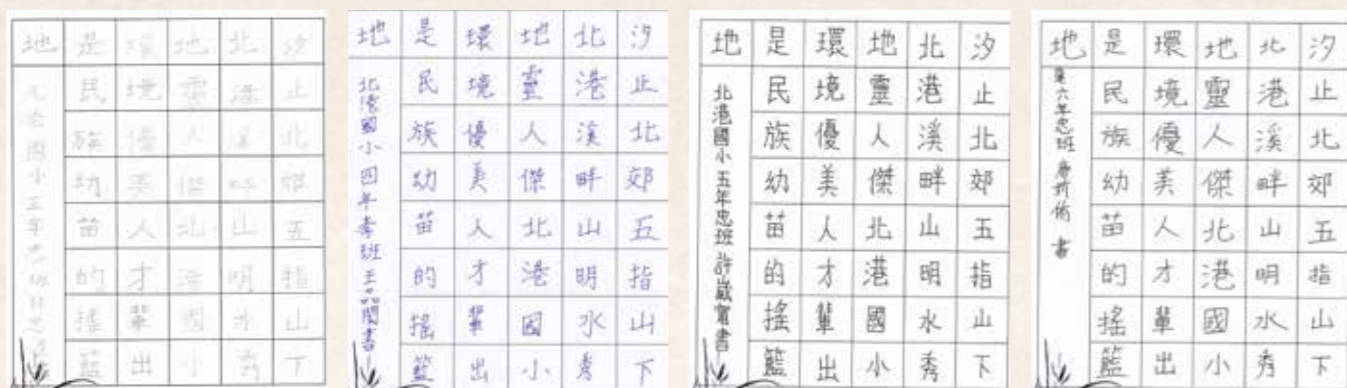 汐止北郊五指山下
北港溪畔山明水秀
地靈人傑北港國小
環境優美人才輩出
是民族幼苗的搖籃
地
北港國小三年忠班
汐止北郊五指山下
北港溪畔山明水秀
地靈人傑北港國小
環境優美人才輩出
是民族幼苗的搖籃
地
北港國小四年孝班王品閑書
汐止北郊五指山下
北港溪畔山明水秀
地靈人傑北港國小
環境優美人才輩出
是民族幼苗的搖籃
地
北港國小五年忠班許崴甯書
汐止北郊五指山下
北港溪畔山明水秀
地靈人傑北港國小
環境優美人才輩出
是民族幼苗的搖籃
地
六年忠班 書